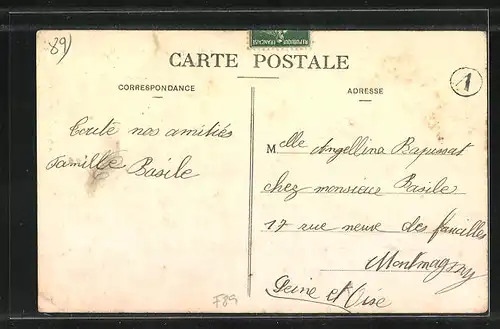 89)
REPUBLIQUE
FRANCAISE
CARTE POSTALE
1
CORRESPONDANCE
ADRESSE
Toute nos amitiés
Famille Basile
Melle Angellina
chez monsieur Basile
17 rue neuve des faucilles
Montmagny
Seine et Oise
F89